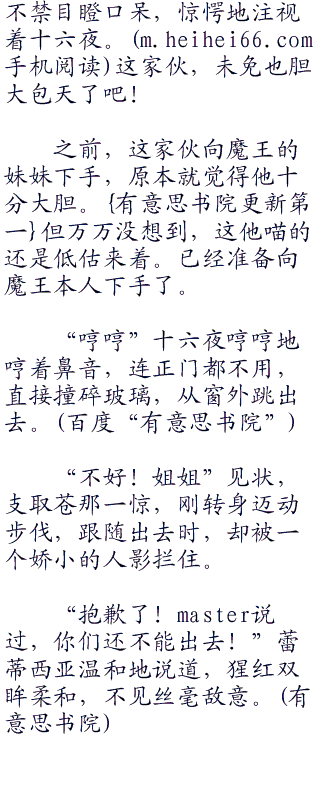 不禁目瞪口呆，惊愕地注视
着十六夜。(m.heihei66.com
手机阅读)这家伙，未免也胆
大包天了吧！
之前，这家伙向魔王的
妹妹下手，原本就觉得他十
分大胆。{有意思书院更新第
一}但万万没想到，这他喵的
还是低估来着。已经准备向
魔王本人下手了。
“哼哼”十六夜哼哼地
哼着鼻音，连正门都不用，
直接撞碎玻璃，从窗外跳出
去。(百度“有意思书院”)
“不好！姐姐”见状，
支取苍那一惊，刚转身迈动
步伐，跟随出去时，却被一
个娇小的人影拦住。
“抱歉了！master说
过，你们还不能出去！”蕾
蒂西亚温和地说道，猩红双
眸柔和，不见丝毫敌意。(有
意思书院)